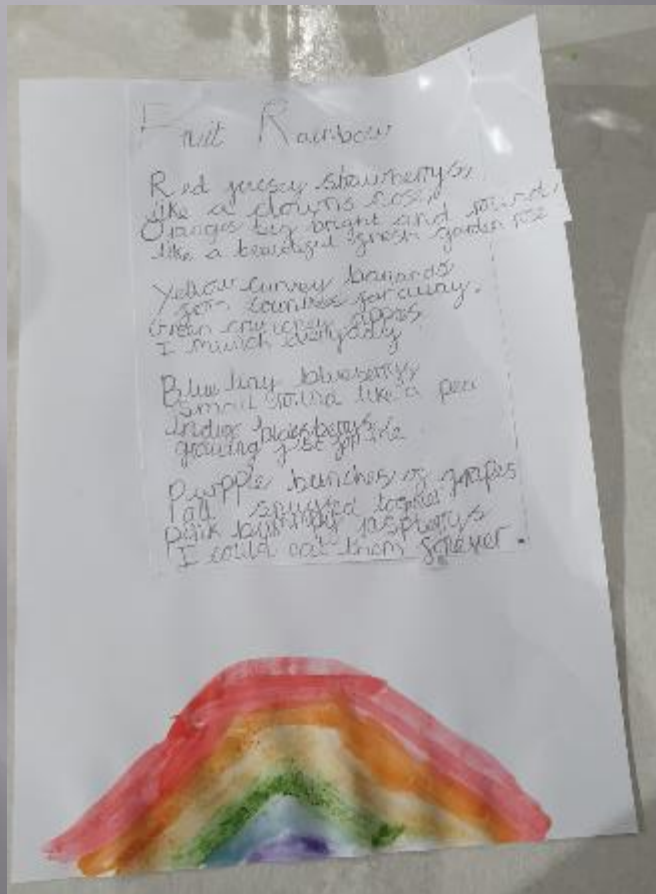 Fruit Rainbow
Red juicey strawberrys,
like a clowns nose,
Oranges big bright and round,
like a beautiful fresh garden rose
Yellow curvey bananas
from countres far away.
Green crunchey apples
I munch everyday
Blue tiny blueberrys
Small round like a pea
Indigo blackberrys
growing just for me.
Purpple bunches of grapes
all squished together
pink bumpy raspberrys
I could eat them forever.